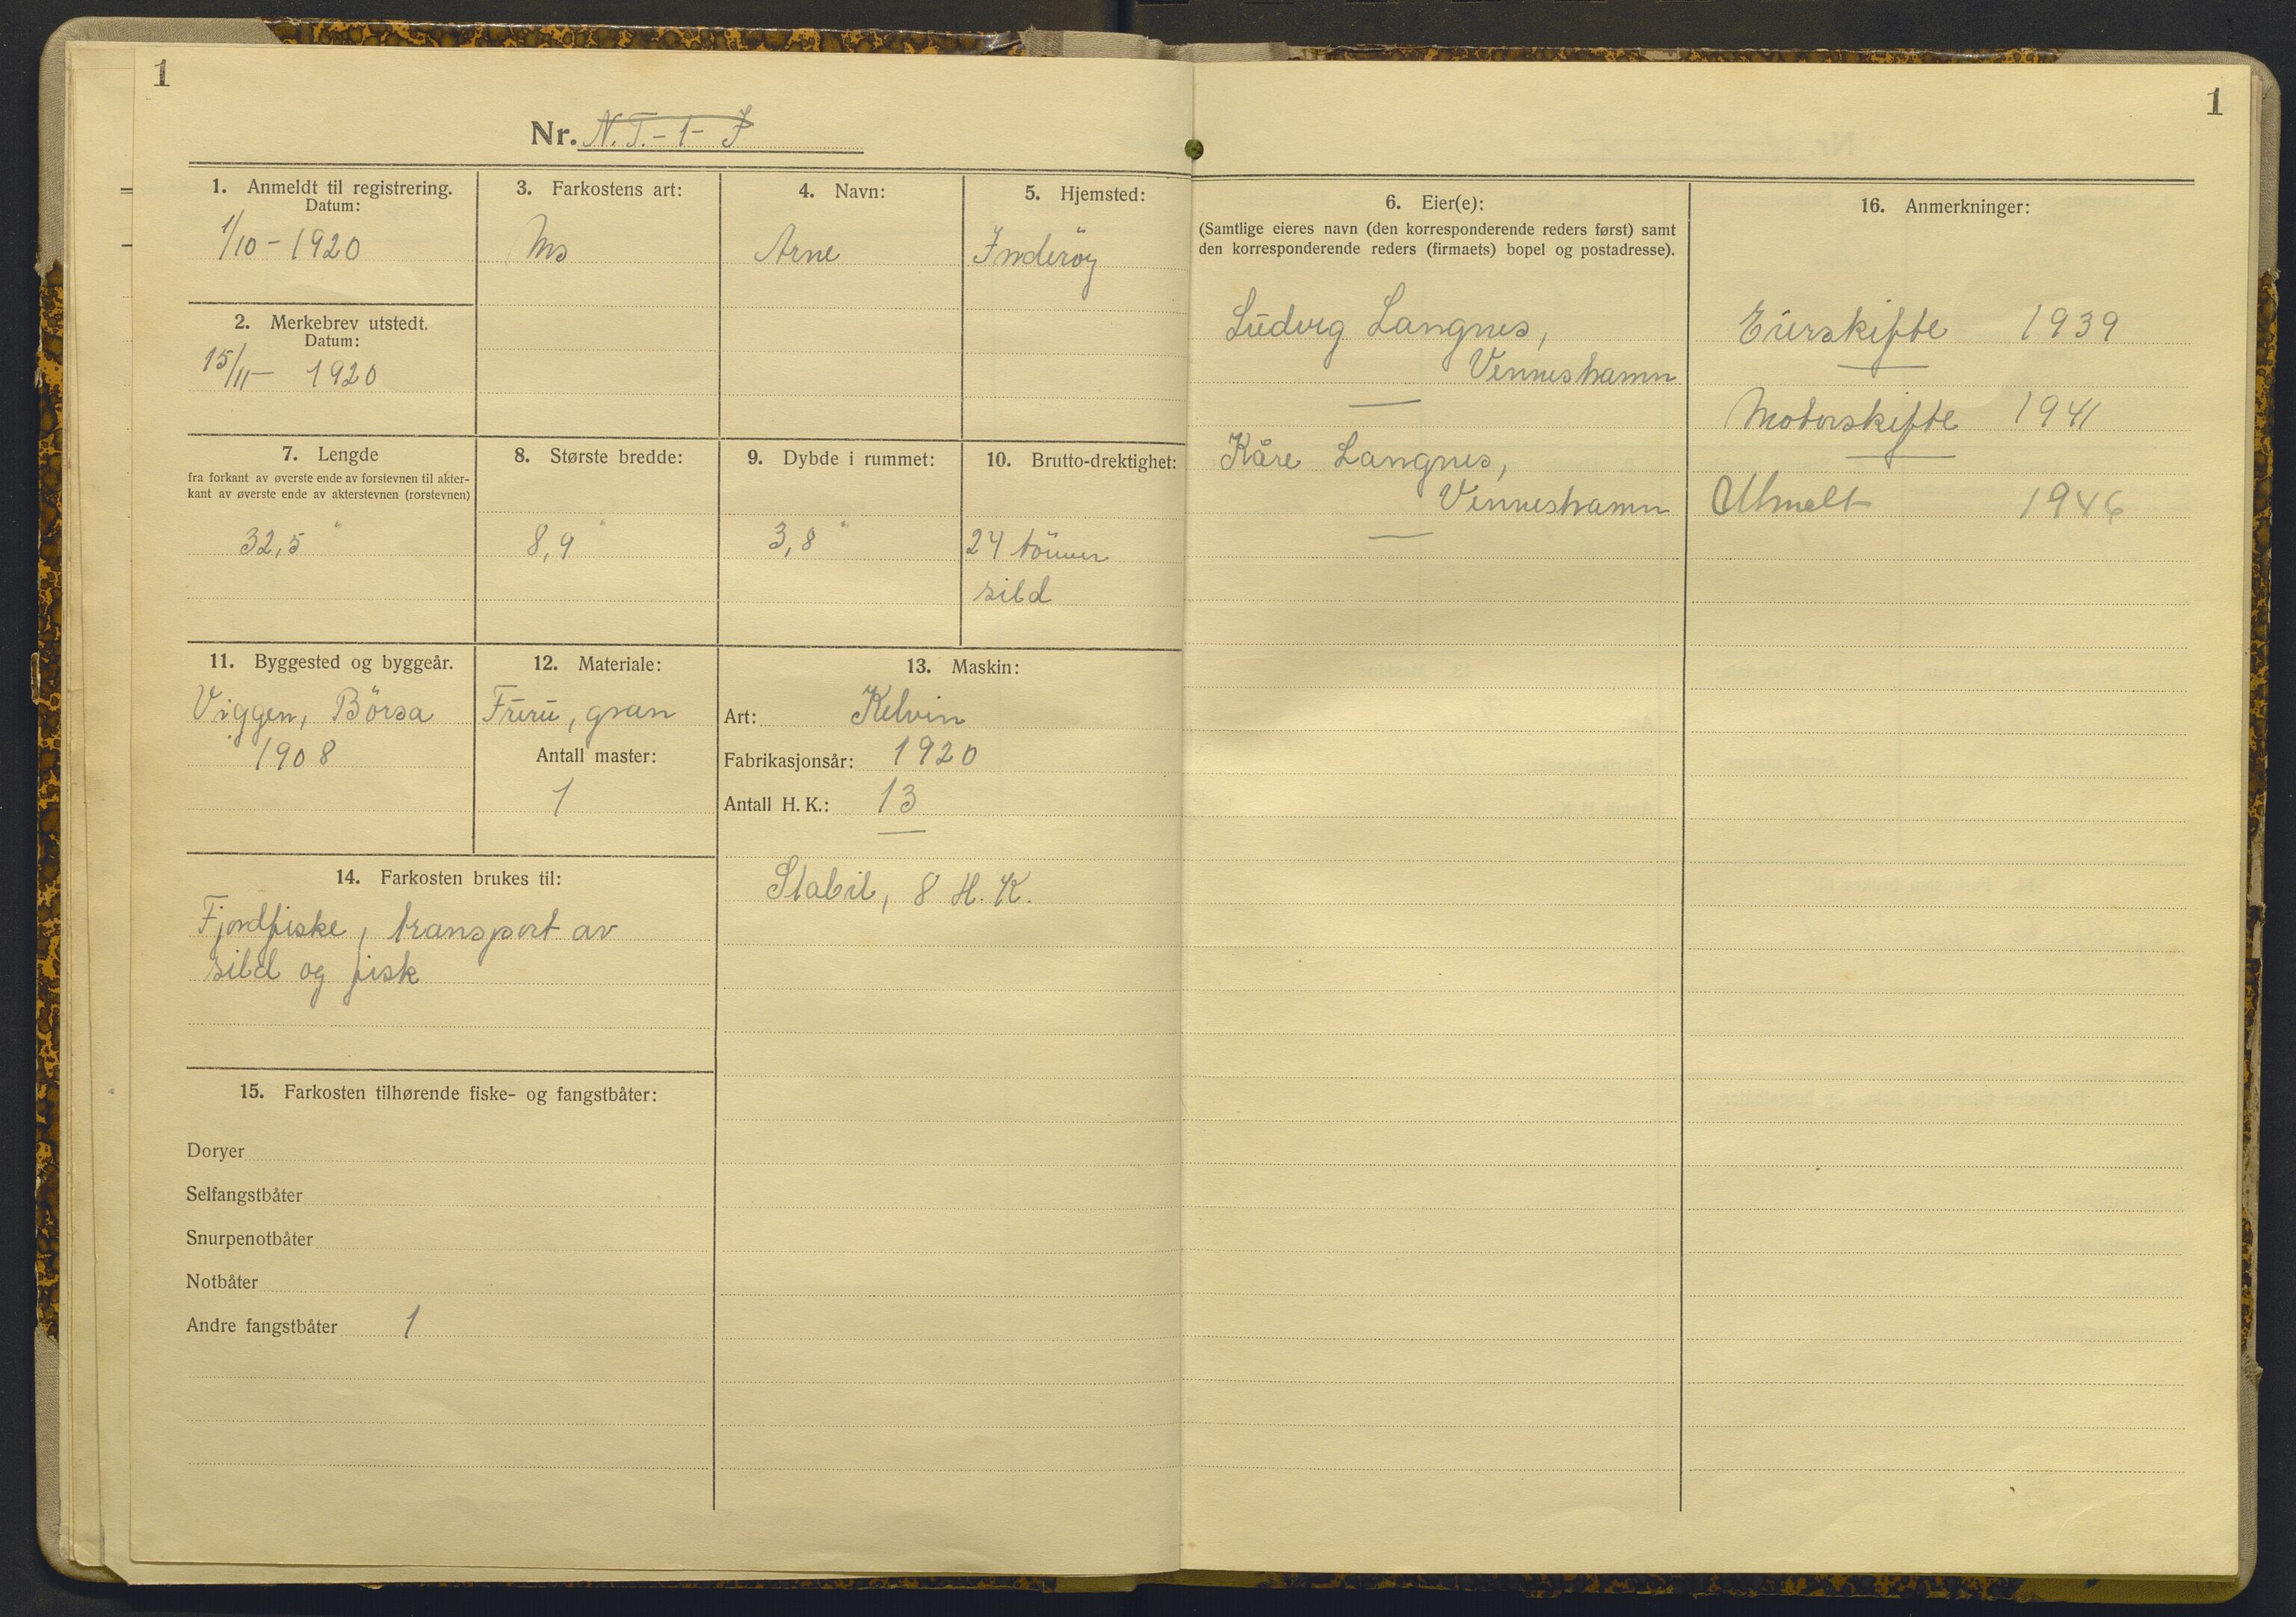 1
1
Nr. N.T.-1-I
1. Anmeldt til registrering.
Datum:
1/10 - 1920
3. Farkostens art:
Ms
4. Navn:
Arne
5. Hjemsted:
Inderöy
2. Merkebrev utstedt.
Datum:
15/11 - 1920
7. Lengde
fra forkant av øverste ende av forstevnen til akter-
kant av øverste ende av akterstevnen (rorstevnen)
32,5 "
8. Største bredde:
8,9 "
9. Dybde i rummet:
3,8 "
10. Brutto-drektighet:
24 tönner
sild
11. Byggested og byggeår.
Viggen, Börsa
1908
12. Materiale:
Fururu, gran
Antall master:
1
13. Maskin:
Art: Kelvin
Fabrikasjonsår: 1920
Antall H. K.: 13
Stabil, 8 H.K.
14. Farkosten brukes til:
Fjordfiske, transport av
sild og fisk
15. Farkosten tilhørende fiske- og fangstbåter:
Doryer
Selfangstbåter
Snurpenotbåter
Notbåter
Andre fangstbåter 1
6. Eier(e):
(Samtlige eieres navn (den korresponderende reders først) samt
den korresponderende reders (firmaets) bopel og postadresse).
Ludvig Langnes,
Venneshamn
Kåre Langnes,
Venneshamn
16. Anmerkninger:
Eierskifte 1939
Motorskifte 1941
Utmelt 1946